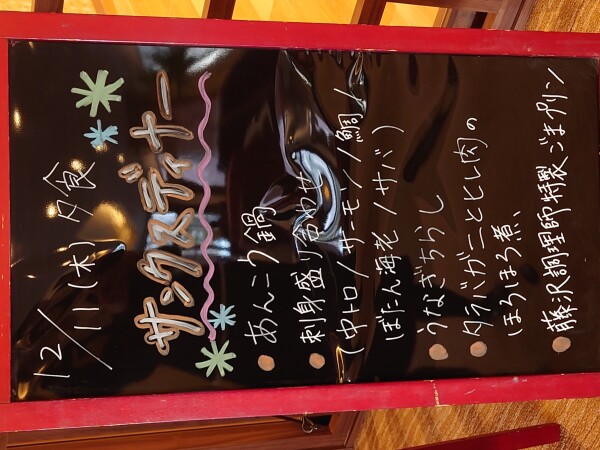 12/11(木) 夕食
サンクスディナー
●あんこう鍋
●刺身盛り合わせ
(中トロ/サーモン/鯛/
ぼたん海老/サバ)
●うなぎちらし
●タラバガニとヒレ肉の
ほろほろ煮、
●藤沢調理師特製ごまプリン